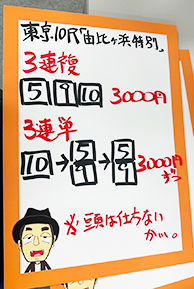 東京10R「由比ヶ浜特別」
3連複
5 9 10 3000円
3連単
10→5/9→5/9 3000円ずつ
※頭は仕方ない
かい。